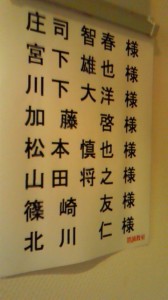 庄司 智春 様
宮下 雄也 様
川下 大洋 様
加藤 啓 様
松本 慎也 様
山田 将之 様
篠崎 友 様
北川 仁 様